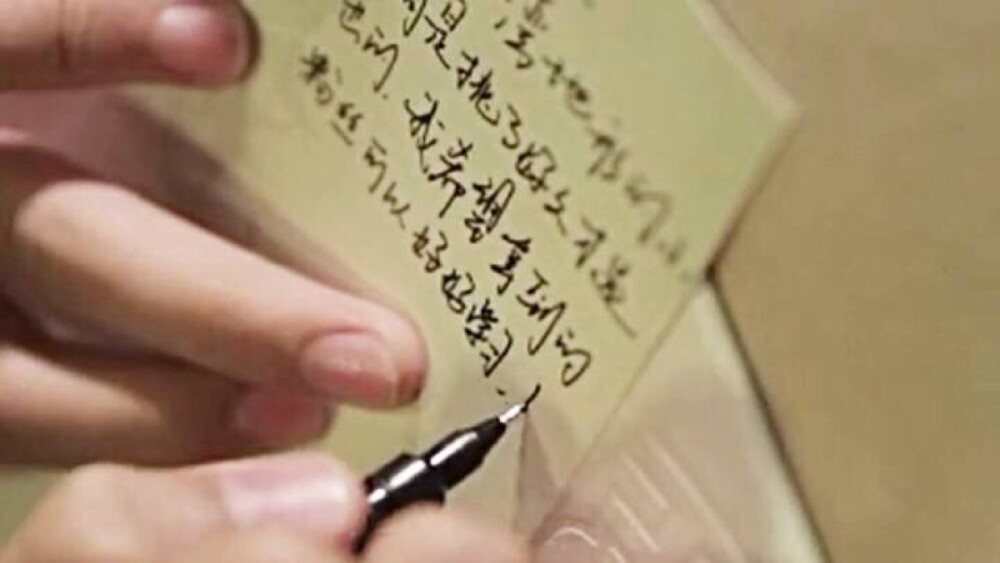 是挑了好久才选
出的.我希望拿到的
粉丝可以好好学习.